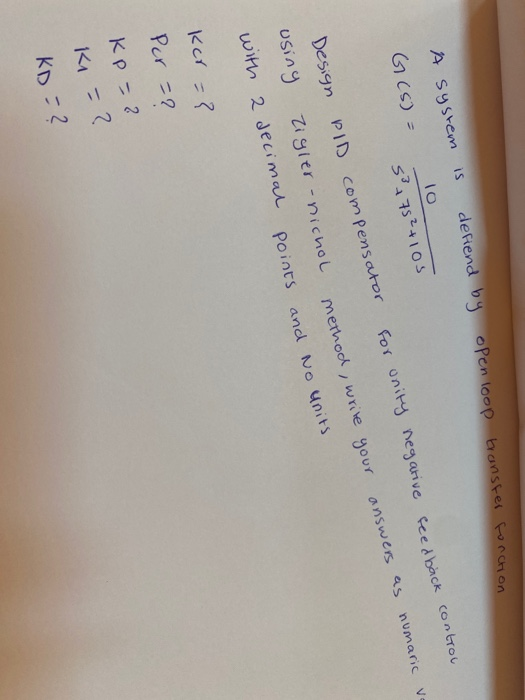 A system is defiend by open loop transfer function
G(s) = 10 / s³+7s²+10s
Design PID compensator for unity negative feedback control
using zigler-nichol method, write your answers as numaric
with 2 decimal points and No units
Kcr = ?
Pcr = ?
KP = ?
KI = ?
KD = ?